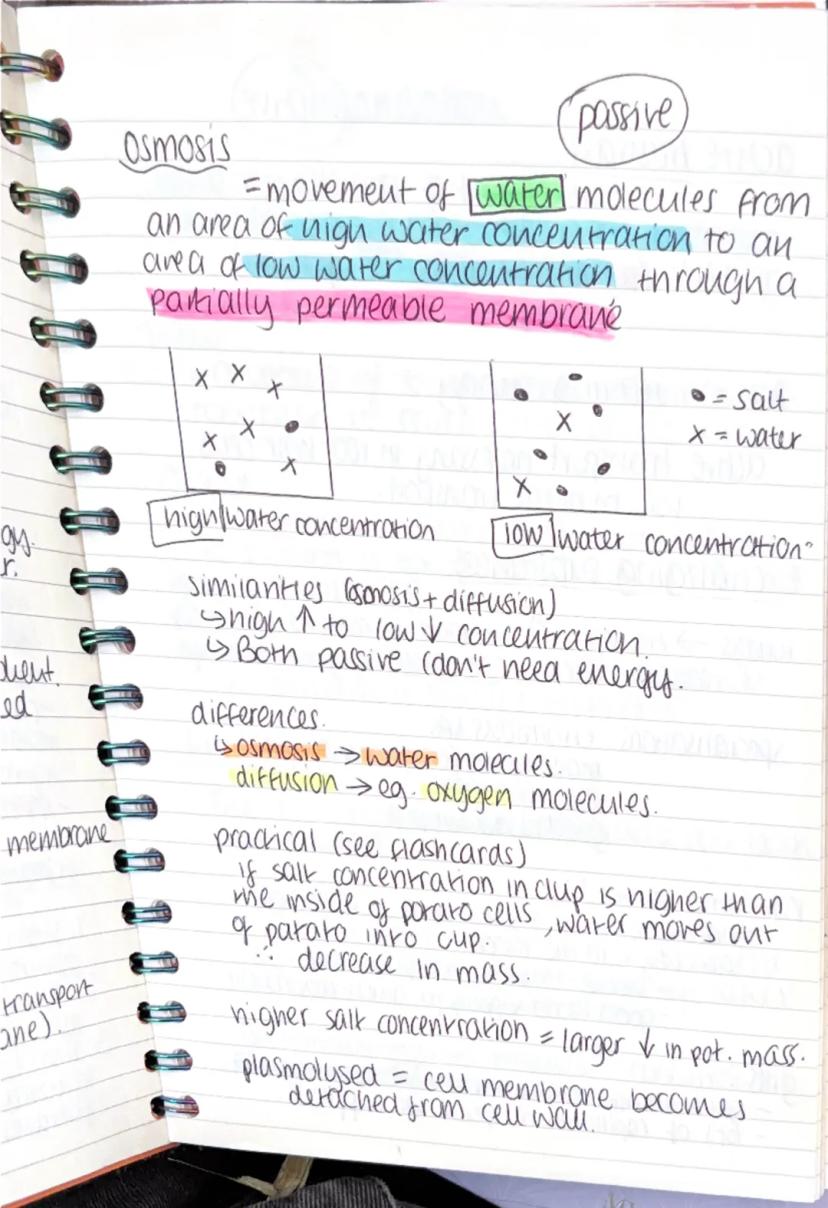 passive
Osmosis
= movement of water molecules from
an area of high water concentration to an
area of low water concentration through a
partially permeable membrane
• = salt
x = water
high water concentration
low water concentration
similarities (osmosis + diffusion)
↳ high ↑ to low ↓ concentration.
↳ Both passive (don't need energy.
differences.
↳ osmosis → water molecules.
diffusion → eg. oxygen molecules.
practical (see flashcards)
if salt concentration in clup is higher than
the inside of porato cells, water moves out
of patato into cup.
∴ decrease in mass.
higher salt concentration = larger ↓ in pot. mass.
plasmolysed = cell membrane becomes
detached from cell wall.
gy.
r.
ed
membrane
transport
ane).